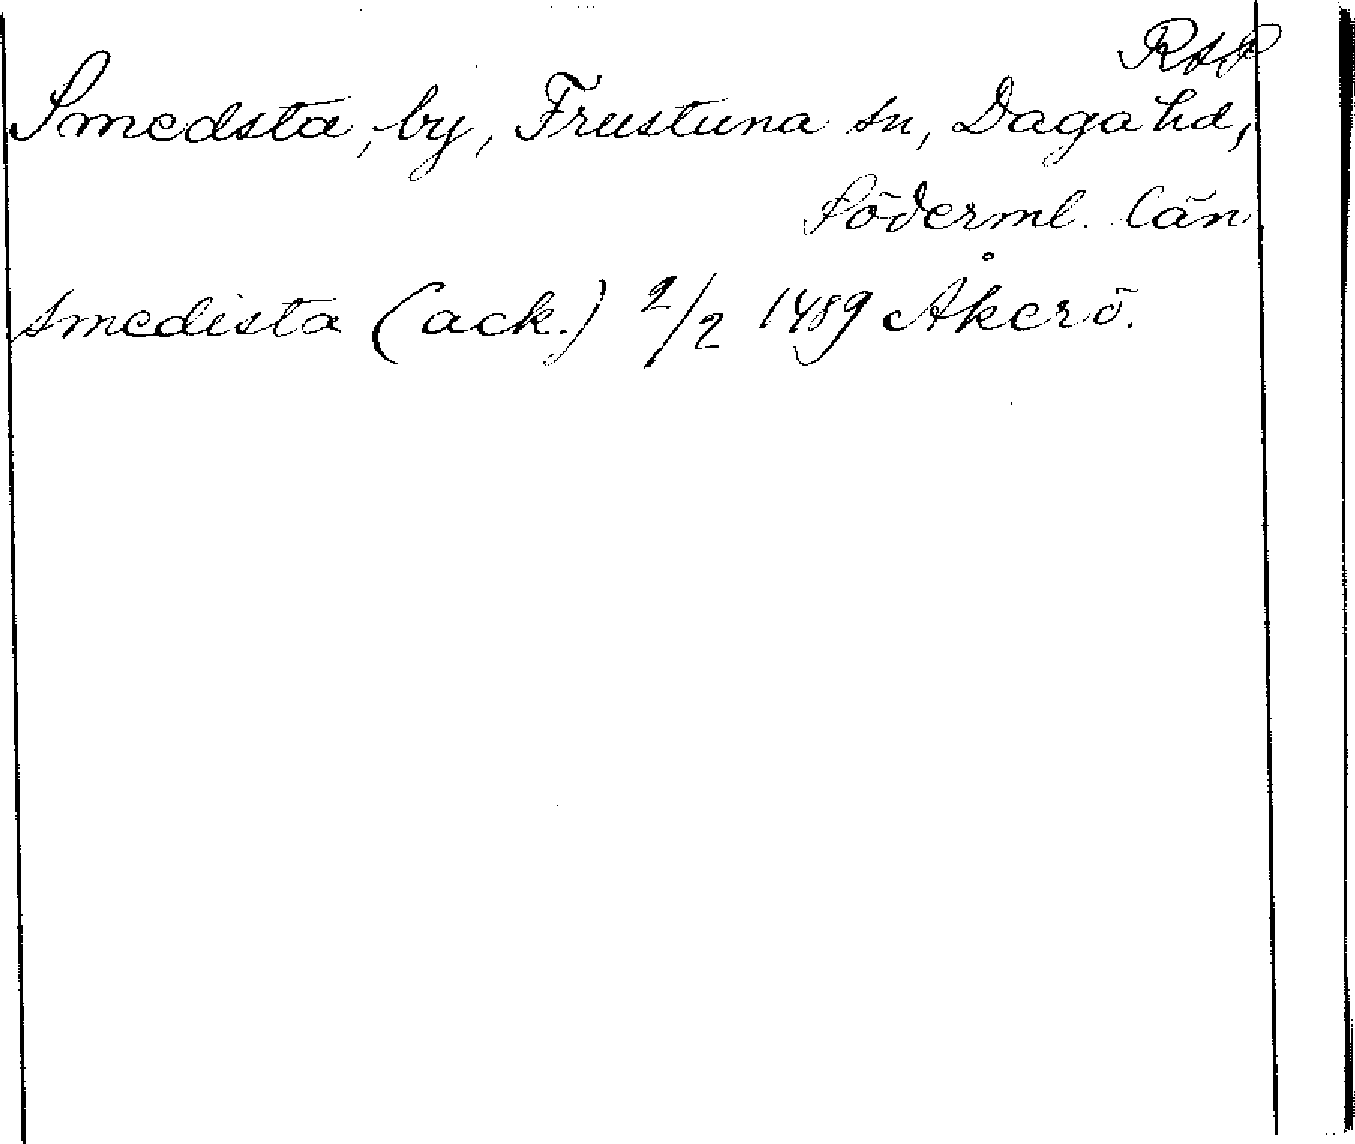 RAP
Smedsta, by, Frustuna sn, Daga hd,
Söderml. län
smedista (ack.) 2/2 1489 Åkerö.